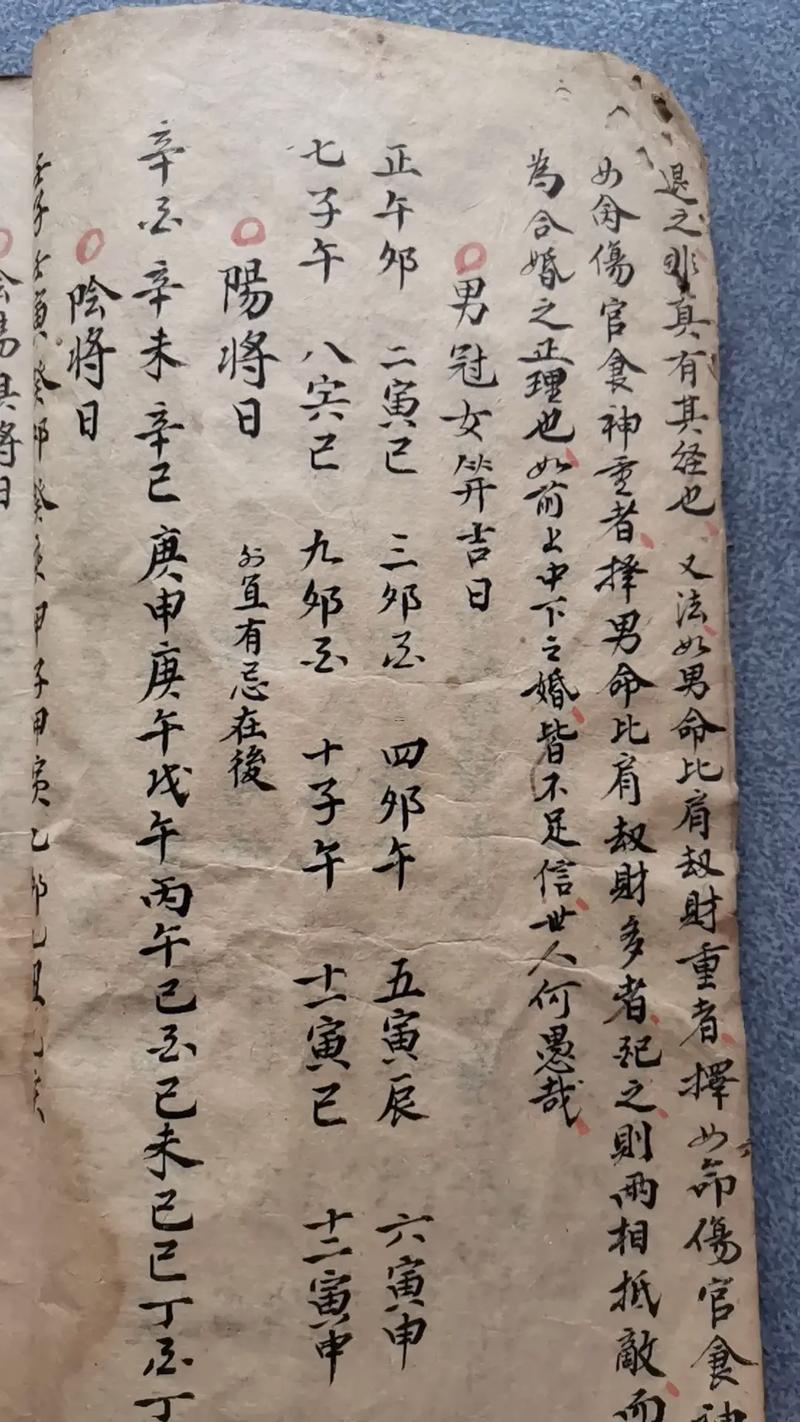 退之非真有其経也 又法如男命比肩劫財重者擇女命傷官食神
女命傷官食神重者擇男命比肩劫財多者配之則兩相抵敵而
為合婚之正理也如前上中下之婚皆不足信世人何愚哉
男冠女笄吉日
正午卯 二寅巳 三卯酉 四卯午 五寅辰 六寅申
七子午 八寅巳 九卯酉 十子午 十一寅巳 十二寅申
陽將日 外宜有忌在後
辛酉辛未辛巳庚申庚午戊午丙午己酉己未己巳丁酉丁
陰將日
壬子 寅癸卯癸亥甲子甲寅乙卯乙丑
陰陽俱將日